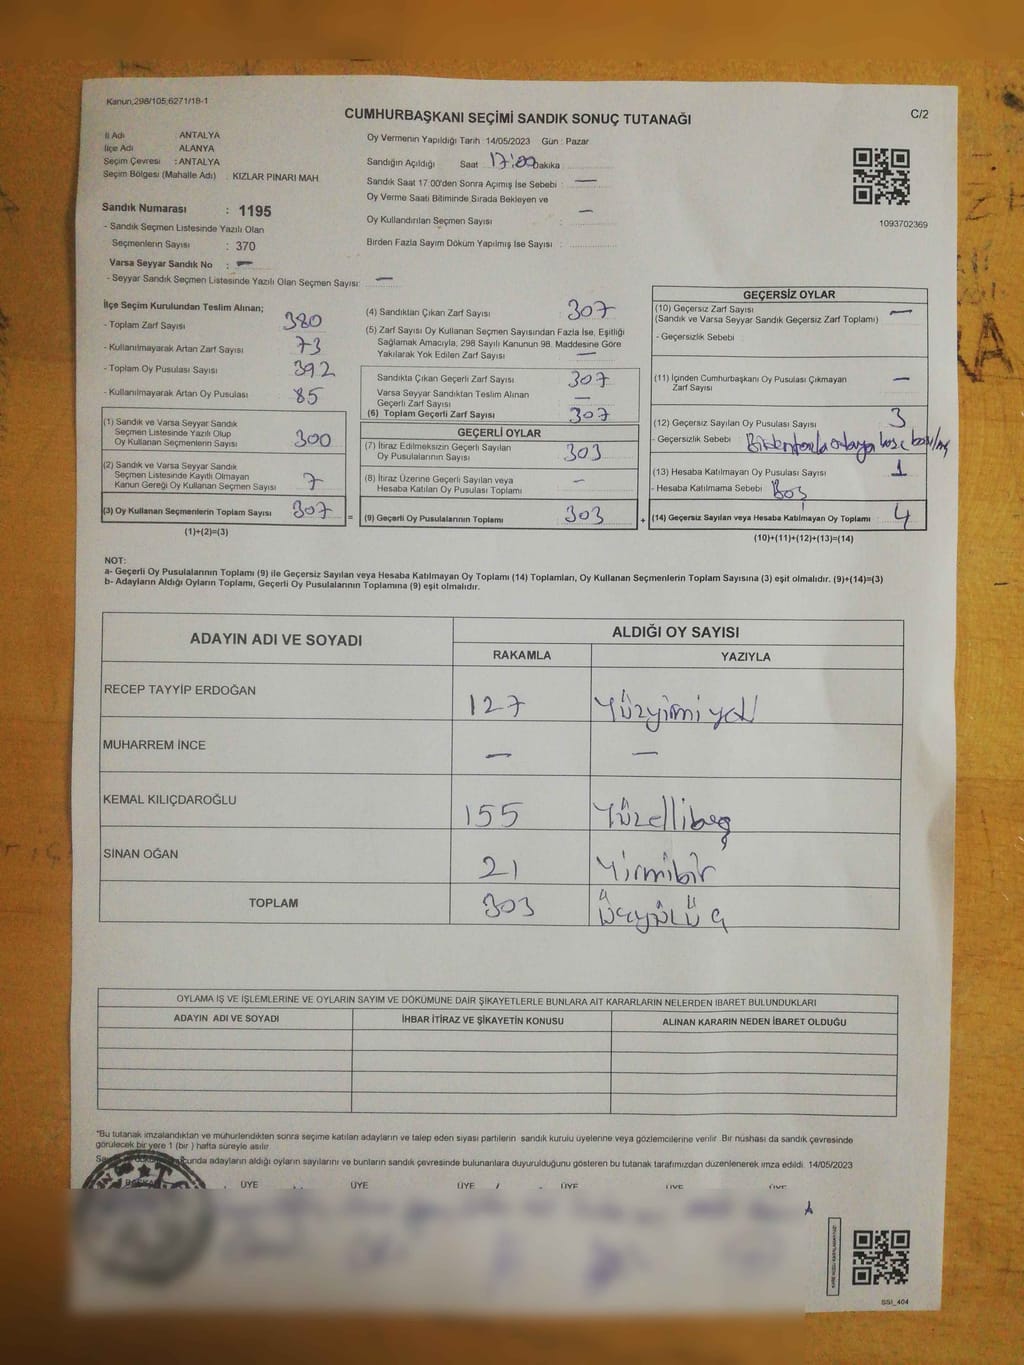 Kanun,298/105,6271/18-1
CUMHURBAŞKANI SEÇİMİ SANDIK SONUÇ TUTANAĞI
C/2
İl Adı : ANTALYA
İlçe Adı : ALANYA
Seçim Çevresi : ANTALYA
Seçim Bölgesi (Mahalle Adı) : KIZLAR PINARI MAH
Sandık Numarası : 1195
- Sandık Seçmen Listesinde Yazılı Olan
Seçmenlerin Sayısı : 370
Varsa Seyyar Sandık No : —
- Seyyar Sandık Seçmen Listesinde Yazılı Olan Seçmen Sayısı: —
Oy Vermenin Yapıldığı Tarih : 14/05/2023 Gün : Pazar
Sandığın Açıldığı Saat 17:00 Dakika
Sandık Saat 17:00'den Sonra Açımış İse Sebebi : —
Oy Verme Saati Bitiminde Sırada Bekleyen ve
Oy Kullandırılan Seçmen Sayısı : —
Birden Fazla Sayım Döküm Yapılmış İse Sayısı :
1093702369
İlçe Seçim Kurulundan Teslim Alınan;
- Toplam Zarf Sayısı 380
- Kullanılmayarak Artan Zarf Sayısı 73
- Toplam Oy Pusulası Sayısı 392
- Kullanılmayarak Artan Oy Pusulası 85
(1) Sandık ve Varsa Seyyar Sandık
Seçmen Listesinde Yazılı Olup
Oy Kullanan Seçmenlerin Sayısı 300
(2) Sandık ve Varsa Seyyar Sandık
Seçmen Listesinde Kayıtlı Olmayan
Kanun Gereği Oy Kullanan Seçmen Sayısı 7
(3) Oy Kullanan Seçmenlerin Toplam Sayısı 307
(1)+(2)=(3)
=
(4) Sandıktan Çıkan Zarf Sayısı 307
(5) Zarf Sayısı Oy Kullanan Seçmen Sayısından Fazla İse, Eşitliği
Sağlamak Amacıyla, 298 Sayılı Kanunun 98. Maddesine Göre
Yakılarak Yok Edilen Zarf Sayısı —
Sandıkta Çıkan Geçerli Zarf Sayısı 307
Varsa Seyyar Sandıktan Teslim Alınan
Geçerli Zarf Sayısı —
(6) Toplam Geçerli Zarf Sayısı 307
GEÇERLİ OYLAR
(7) İtiraz Edilmeksizin Geçerli Sayılan
Oy Pusulalarının Sayısı 303
(8) İtiraz Üzerine Geçerli Sayılan veya
Hesaba Katılan Oy Pusulası Toplamı —
(9) Geçerli Oy Pusulalarının Toplamı 303
+
GEÇERSİZ OYLAR
(10) Geçersiz Zarf Sayısı —
(Sandık ve Varsa Seyyar Sandık Geçersiz Zarf Toplamı)
- Geçersizlik Sebebi
(11) İçinden Cumhurbaşkanı Oy Pusulası Çıkmayan
Zarf Sayısı —
(12) Geçersiz Sayılan Oy Pusulası Sayısı 3
- Geçersizlik Sebebi
(13) Hesaba Katılmayan Oy Pusulası Sayısı 1
- Hesaba Katılmama Sebebi Boş
(14) Geçersiz Sayılan veya Hesaba Katılmayan Oy Toplamı 4
(10)+(11)+(12)+(13)=(14)
NOT:
a- Geçerli Oy Pusulalarının Toplamı (9) ile Geçersiz Sayılan veya Hesaba Katılmayan Oy Toplamı (14) Toplamları, Oy Kullanan Seçmenlerin Toplam Sayısına (3) eşit olmalıdır. (9)+(14)=(3)
b- Adayların Aldığı Oyların Toplamı, Geçerli Oy Pusulalarının Toplamına (9) eşit olmalıdır.
ADAYIN ADI VE SOYADI ALDIĞI OY SAYISI
RAKAMLA YAZIYLA
RECEP TAYYİP ERDOĞAN 127 Yüzyirmiyedi
MUHARREM İNCE — —
KEMAL KILIÇDAROĞLU 155 Yüzellibeş
SİNAN OĞAN 21 Yirmibir
TOPLAM 303 Üçyüzüç
OYLAMA İŞ VE İŞLEMLERİNE VE OYLARIN SAYIM VE DÖKÜMÜNE DAİR ŞİKAYETLERLE BUNLARA AİT KARARLARIN NELERDEN İBARET BULUNDUKLARI
ADAYIN ADI VE SOYADI İHBAR İTİRAZ VE ŞİKAYETİN KONUSU ALINAN KARARIN NEDEN İBARET OLDUĞU
"Bu tutanak imzalandıktan ve mühürlendikten sonra seçime katılan adayların ve talep eden siyasi partilerin sandık kurulu üyelerine veya gözlemcilerine verilir. Bir nüshası da sandık çevresinde
görülecek bir yere 1 (bir ) hafta süreyle asılır.
adayların aldığı oyların sayılarını ve bunların sandık çevresinde bulunanlara duyurulduğunu gösteren bu tutanak tarafımızdan düzenlenerek imza edildi. 14/05/2023
BAŞKAN ÜYE ÜYE ÜYE ÜYE ÜYE ÜYE
SSI_404